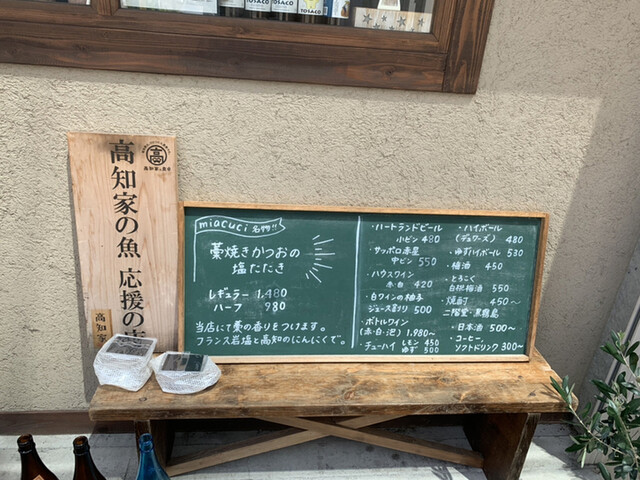 TOSACO
高知家の魚 応援の店
高
高知家の魚
高知家
miacuci 名物!!
藁焼きかつおの
塩たたき
レギュラー 1,480
ハーフ 980
当店にて藁の香りをつけます。
フランス岩塩と高知のにんにくで。
・ハートランドビール
小ビン 480
・サッポロ赤星
中ビン 550
・ハウスワイン
赤・白 420
・白ワインの柚子
ジュース割り 500
・ボトルワイン
(赤・白・泡) 1,980〜
・チューハイ レモン 450
ゆず 500
・ハイボール
(デュワーズ) 480
・ゆずハイボール 530
・梅酒 450
・とろこく
白桃梅酒 550
・焼酎 450〜
二階堂・黒霧島
・日本酒 500〜
・コーヒー、
ソフトドリンク 300〜